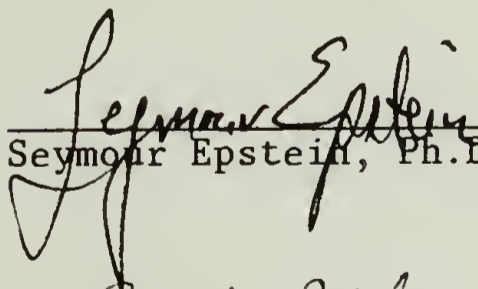 Seymour Epstein
Seymour Epstein, Ph.D